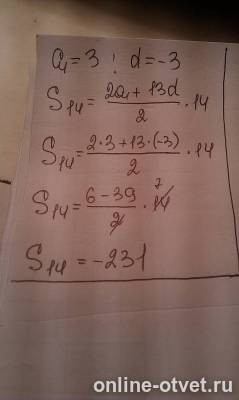 a₁ = 3 ; d = -3
S₁₄ = (2a₁ + 13d)/2 · 14
S₁₄ = (2·3 + 13·(-3))/2 · 14
S₁₄ = (6 - 39)/2 · 14 7
S₁₄ = -231
online-otvet.ru